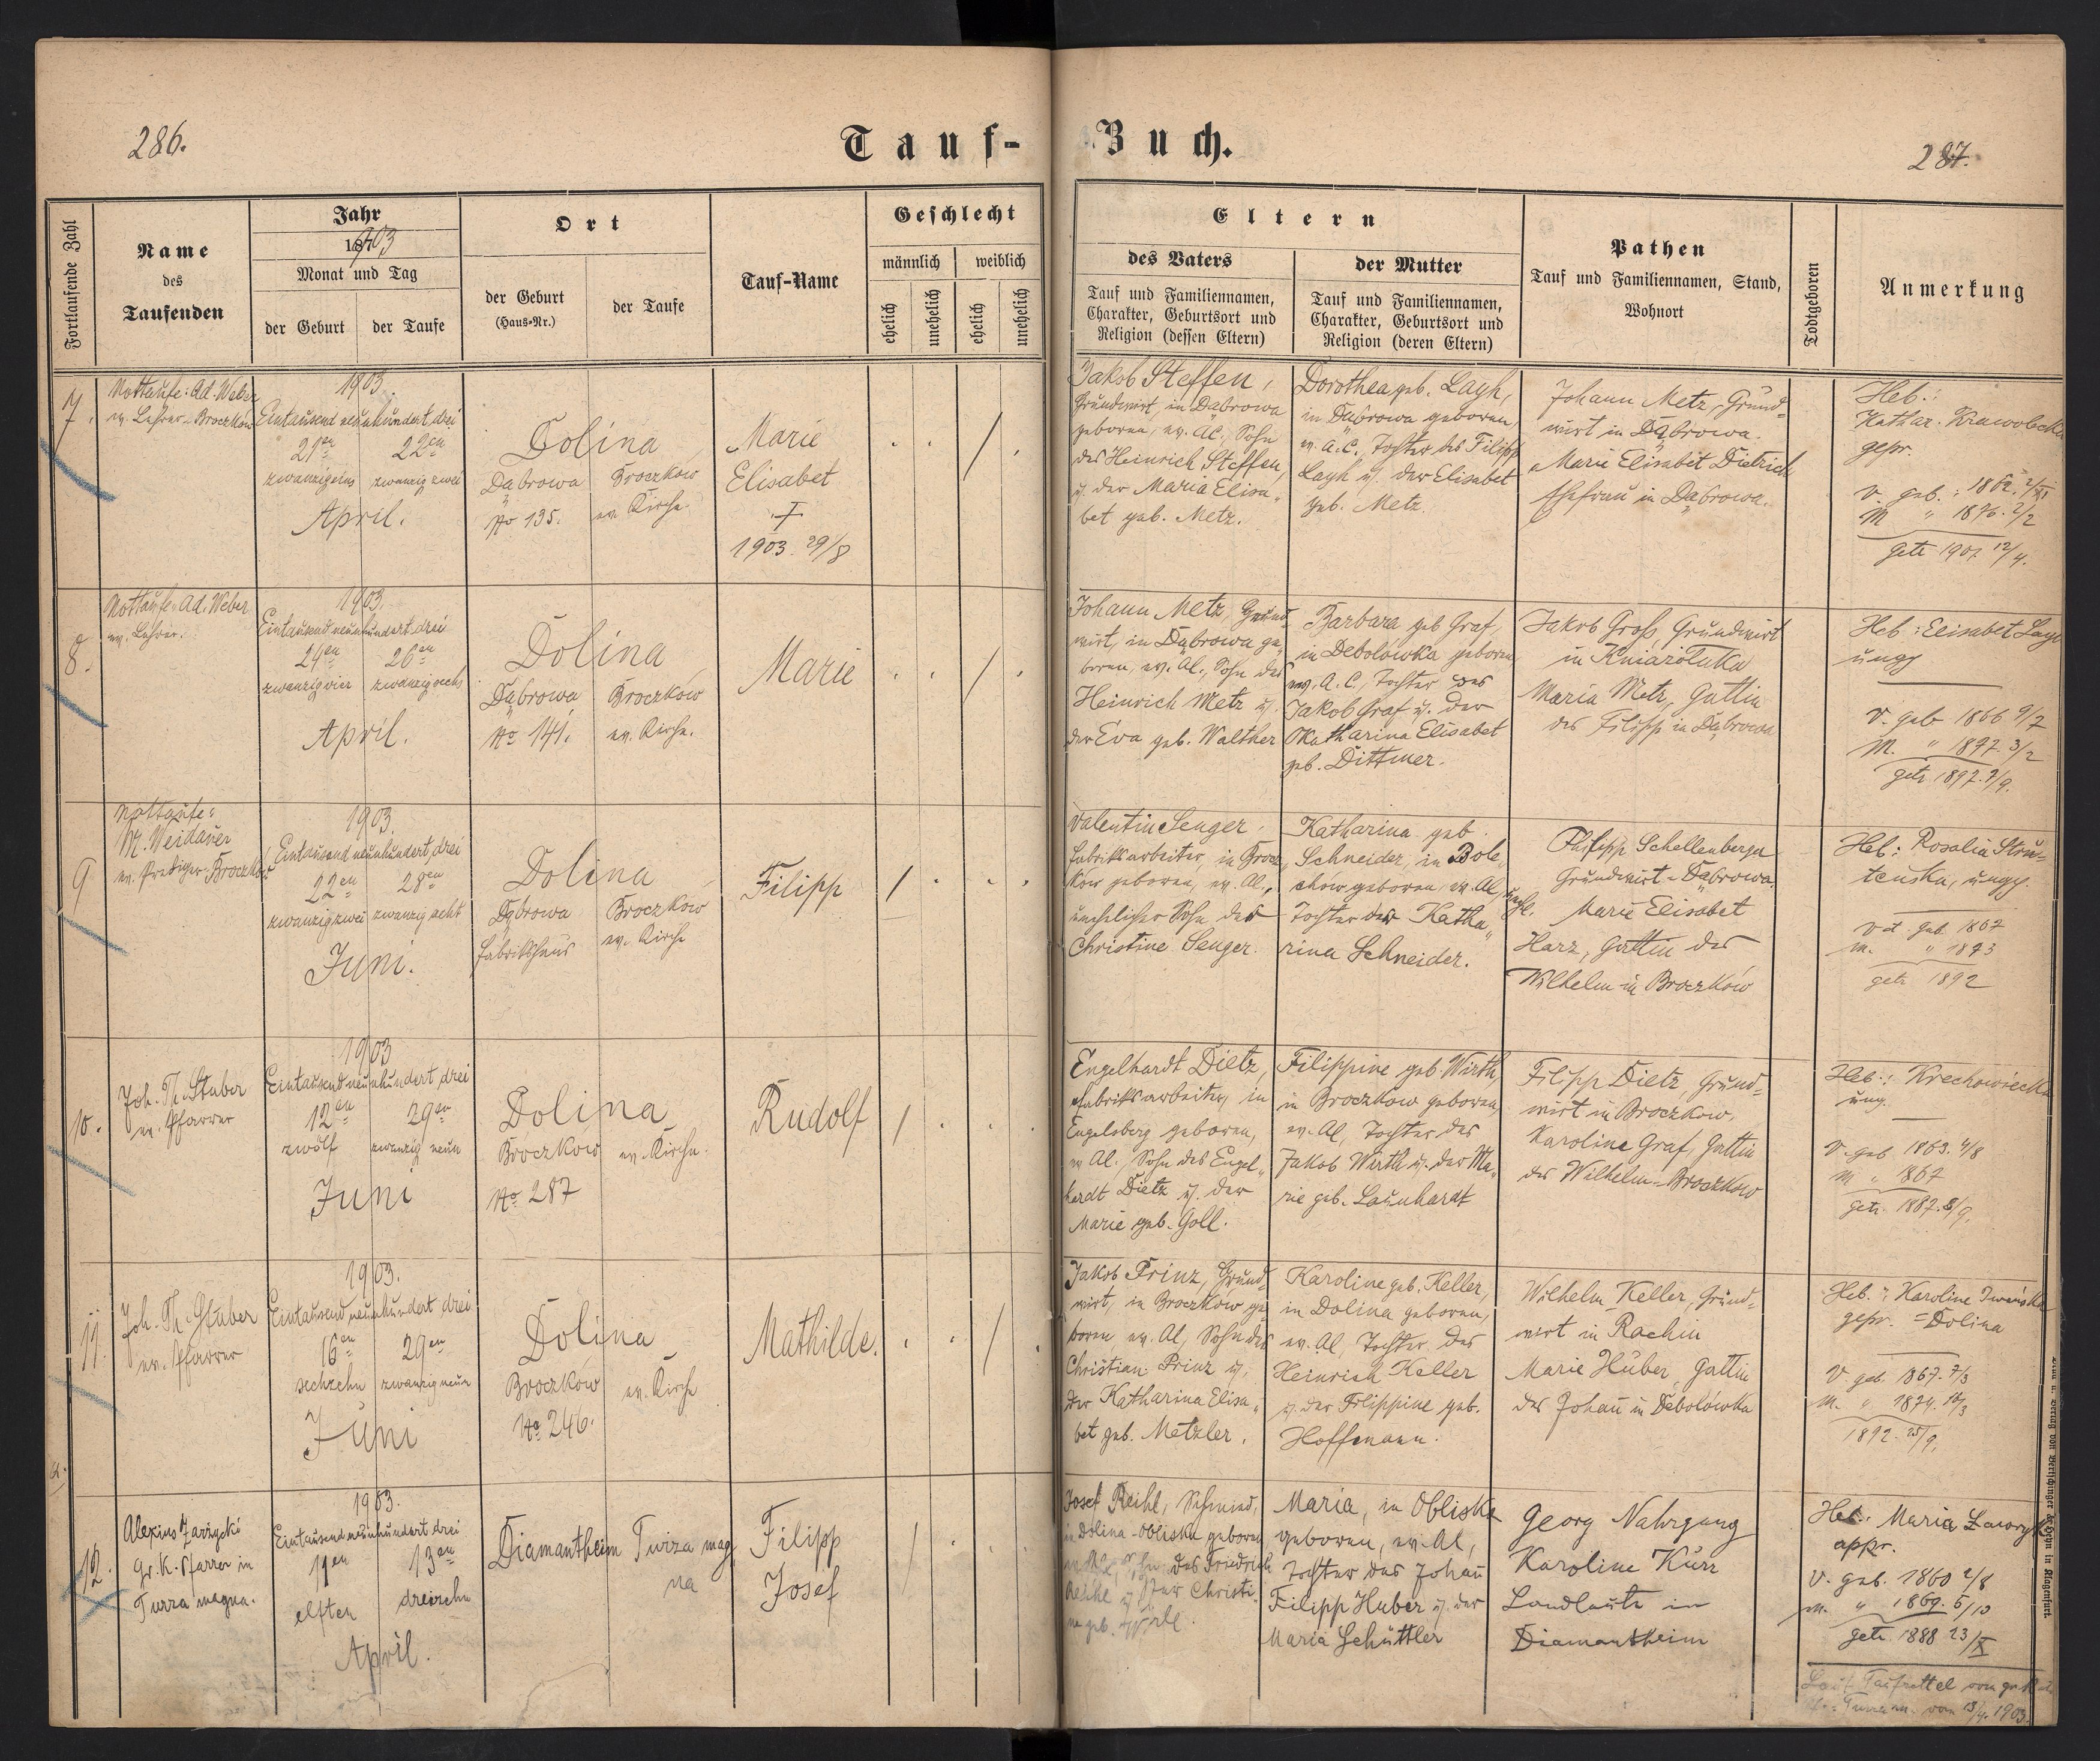 286.
Tauf-Buch.
287.
Fortlaufende Zahl
Name
des
Taufenden
Jahr
1903
Monat und Tag
der Geburt
der Taufe
Ort
der Geburt
(Haus-Nr.)
der Taufe
Tauf-Name
Geschlecht
männlich
weiblich
ehelich
unehelich
ehelich
unehelich
Eltern
des Vaters
Tauf und Familiennamen,
Charakter, Geburtsort und
Religion (dessen Eltern)
der Mutter
Tauf und Familiennamen,
Charakter, Geburtsort und
Religion (deren Eltern)
Pathen
Tauf und Familiennamen, Stand,
Wohnort
Todtgeboren
Anmerkung
7.
Nottaufe: Ad. Weber
ev. Lehrer-Broczków
1903.
Eintausend neunhundert drei
21en
22en
zwanzigeins
zwanzig zwei
April.
Dolina
Dąbrowa
No 135.
Broczków
ev. Kirche.
Marie
Elisabet
†
1903. 29/8
Jakob Steffen,
Grundwirt, in Dąbrowa
geboren, ev. Al., Sohn
des Heinrich Steffen,
u. der Maria Elisa-
bet geb. Metz.
Dorothea geb. Layh,
in Dąbrowa geboren,
ev. A.C., Tochter des Filipp
Layh u. der Elisabet
geb. Metz.
Johann Metz, Grund-
wirt in Dąbrowa.
Marie Elisabet Dietrich
Ehefrau in Dąbrowa.
Heb.:
Kathar.
gepr.
v. geb. : 1862. 2/XI
M " 1876. 2/2
getr 1901 12/4.
8.
Nottaufe: Ad. Weber
ev. Lehrer.
1903.
Eintausend neunhundert drei
24en
26en
zwanzigvier
zwanzigsechs
April.
Dolina
Dąbrowa
No 141.
Broczków
ev. Kirche.
Marie
Johann Metz, Grund-
wirt, in Dąbrowa ge-
boren, ev. Al., Sohn des
Heinrich Metz u.
der Eva geb. Walther
Barbara geb Graf,
in Debolówka geboren
ev. A.C., Tochter des
Jakob Graf u. der
Katharina Elisabet
geb. Dittmer.
Jakob Groß, Grundwirt
in Kniaziołuka
Maria Metz, Gattin
des Filipp in Dąbrowa
Heb.: Elisabet Layh
ungpr
v. geb 1866 9/7
M. " 1877. 3/2
getr. 1897. 7/9.
9
Nottaufe:
M. Weidauer
ev. Prediger-Broczków
1903.
Eintausend neunhundert, drei
22en
28en
zwanzigzwei
zwanzig acht
Juni.
Dolina
Dąbrowa
Fabrikshaus
Broczków
ev. Kirche
Filipp
Valentin Senger,
Fabriksarbeiter, in Brocz-
ków geboren, ev. Al.,
unehelicher Sohn der
Christine Senger.
Katharina geb.
Schneider, in Bole-
chów geboren, ev. Al., unehl.
Tochter der Katha-
rina Schneider.
Philipp Schellenberger
Grundwirt-Dąbrowa.
Marie Elisabet
Harz, Gattin des
Wilhelm in Broczków
Heb.: Rosalia Stru-
tenska, ungepr.
Vat. geb. 1867
M. " 1873
getr 1892
10.
Joh. Th. Stuber
ev. Pfarrer
1903
Eintausend neunhundert, drei
12en
29en
zwölf
zwanzig neun
Juni
Dolina
Broczków
No 287
ev. Kirche.
Rudolf
Engelhardt Dietz,
Fabriksarbeiter, in
Engelsberg geboren,
ev Al., Sohn des Engel-
hardt Dietz u. der
Marie geb. Goll.
Filippine geb Wirth,
in Broczkow geboren,
ev. Al, Tochter des
Jakob Wirth u. der Ma-
rie geb. Launhardt
Filipp Dietz, Grund-
wirt in Broczkow,
Karoline Graf, Gattin
des Wilhelm-Broczkow
Heb.: Krechowiecka
ung.
V. geb 1863. 4/8
M " 1867
getr. 1887. 8/9.
11.
Joh. Th. Stuber
ev. Pfarrer
1903.
Eintausend neunhundert drei
16en
29en
sechzehn
zwanzigneun
Juni
Dolina
Broczków
No 246.
ev. Kirche
Mathilde.
Jakob Prinz, Grund-
wirt, in Broczków ge-
boren ev. Al, Sohn des
Christian Prinz u.
der Katharina Elisa-
bet geb. Metzler.
Karoline geb. Keller,
in Dolina geboren,
ev. Al, Tochter des
Heinrich Keller
u. der Filippine geb.
Hoffmann.
Wilhelm Keller, Grund-
wirt in Rachin
Marie Huber, Gattin
des Johañ in Debolówka
Heb.: Karoline
gepr. = Dolina
V. geb. 1867. 7/3
M. " 1874. 10/3
1892. 25/9.
12.
Alexius Zarzycki
Gr. K. Pfarrer in
Turza magna.
1903.
Eintausend neunhundert drei
11en
13en
elften
dreizehn
April.
Diamantheim
Turza mag
na
Filipp
Josef
Josef Reihl, Schmied,
in Dolina-Obliska geboren
Sohn des Friedrich
Reihl u. der Christi-
ne geb.
Maria, in Obliska
geboren, ev. Al,
Tochter des Johañ
Filipp Huber u. der
Maria Schüttler
Georg Nahrgang
Karoline Kurz
Landleute in
Diamantheim
Heb.: Maria
appr.
V. geb. 1860 2/8
M. " 1869. 5/10
getr. 1888 23/X
Laut Taufzettel vom
vom 13/4. 1903.